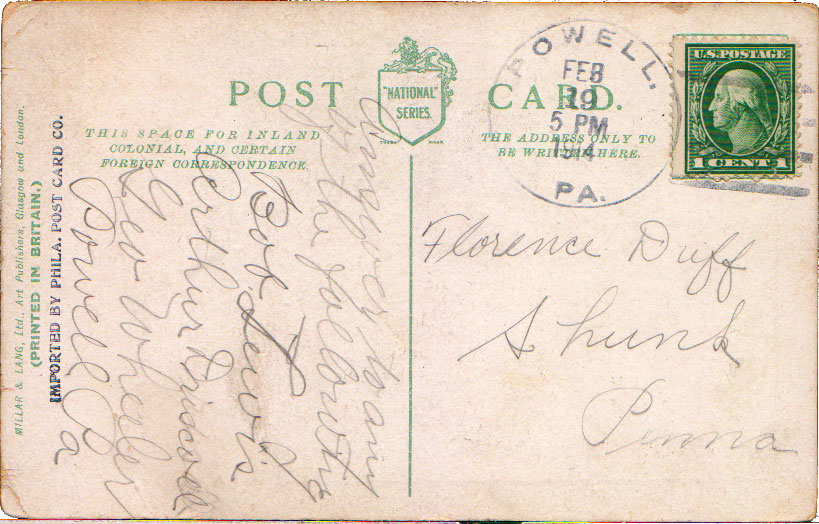 POST CARD.
"NATIONAL" SERIES.
TRADE MARK
THIS SPACE FOR INLAND,
COLONIAL, AND CERTAIN
FOREIGN CORRESPONDENCE.
THE ADDRESS ONLY TO
BE WRITTEN HERE.
POWELL,
FEB
19
5 PM
1914
PA.
U.S. POSTAGE
1 CENT 1
MILLAR & LANG, Ltd., Art Publishers, Glasgow und London.
(PRINTED IN BRITAIN.)
IMPORTED BY PHILA. POST CARD CO.
answer to any
of the following
Bob Lewis
Arthur Driscoll
Geo Wheeler
Powell Pa
Florence Duff
Shunk
Penna